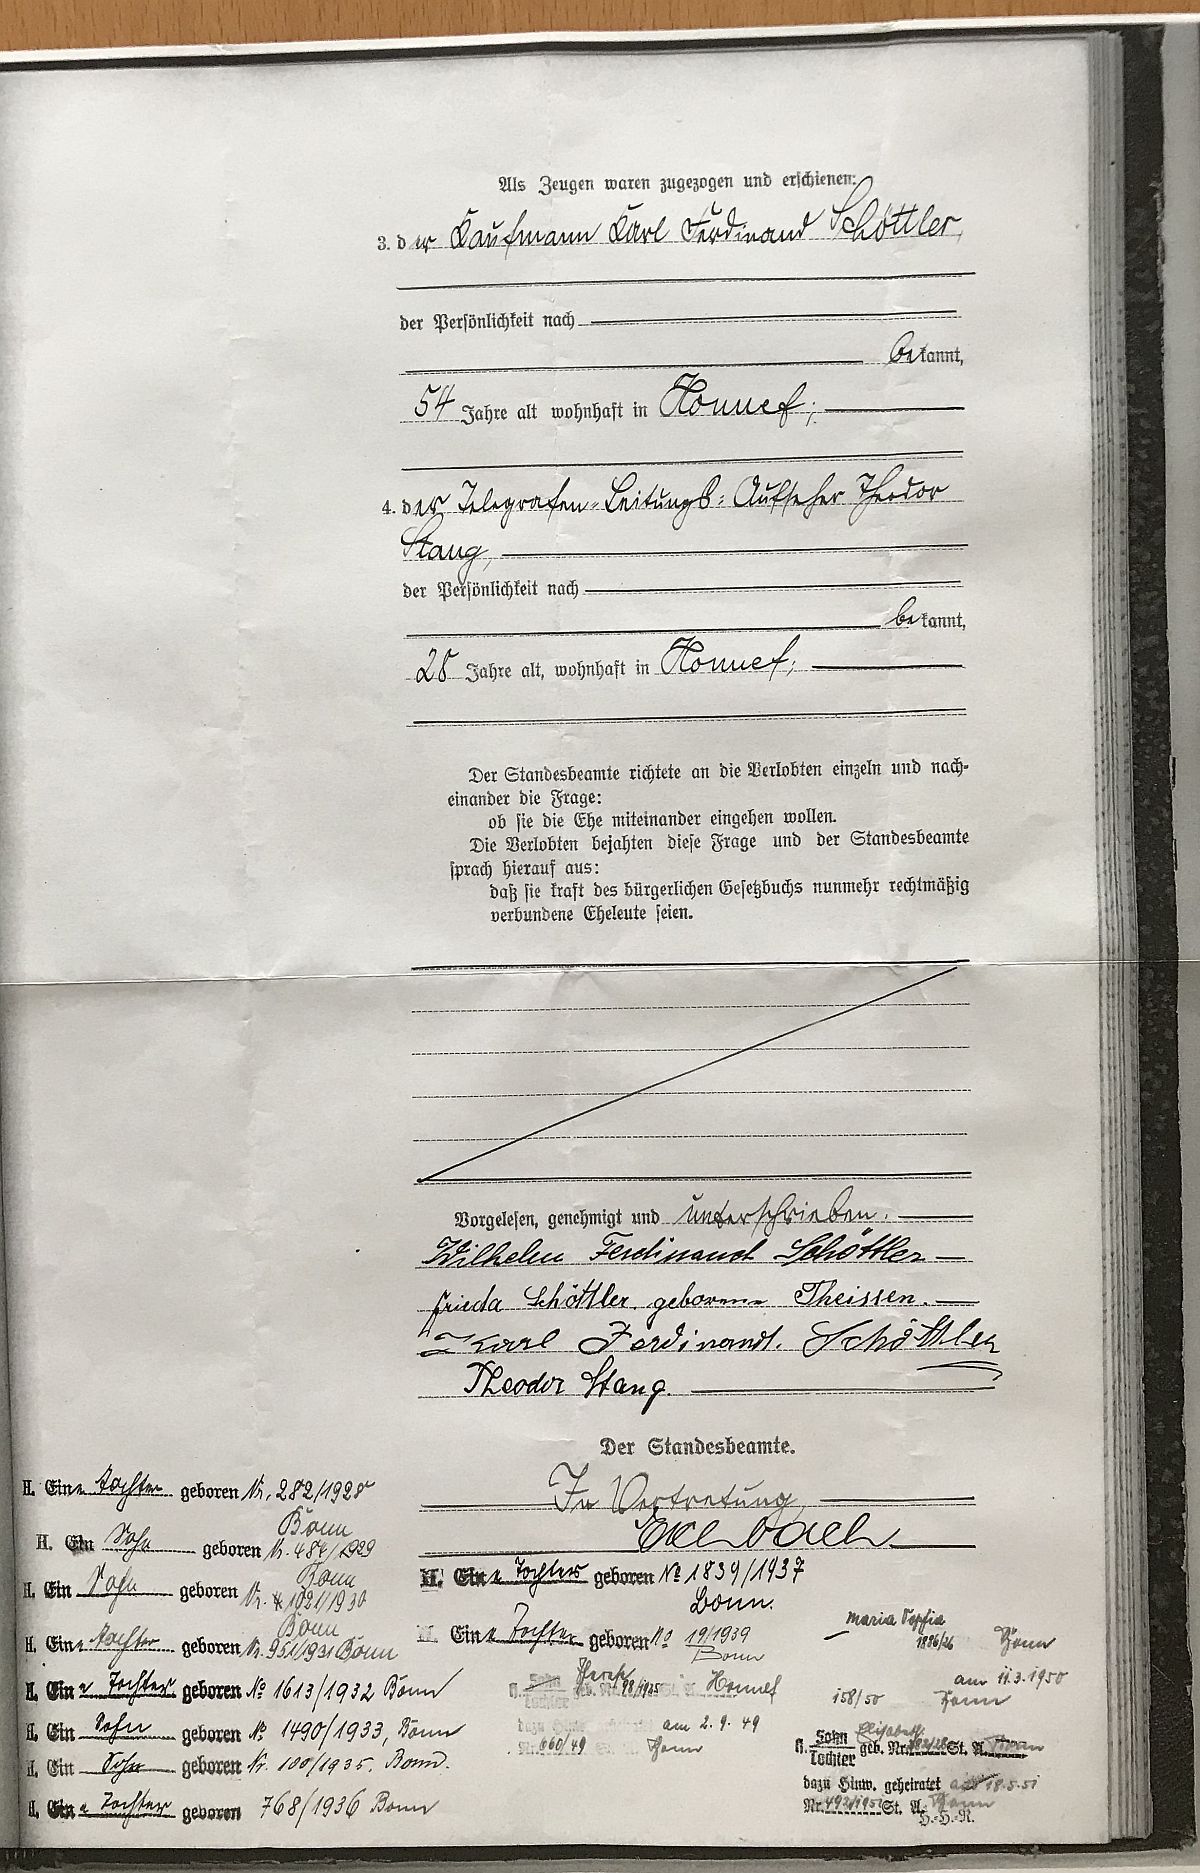 Als Zeugen waren zugezogen und erschienen:
3. der Kaufmann Karl Ferdinand Schöttler,
der Persönlichkeit nach
bekannt,
54 Jahre alt wohnhaft in Honnef;
4. der Telegrafen-Leitungs-Aufseher Theodor
Stang,
der Persönlichkeit nach
bekannt,
28 Jahre alt, wohnhaft in Honnef;
Der Standesbeamte richtete an die Verlobten einzeln und nach-
einander die Frage:
ob sie die Ehe miteinander eingehen wollen.
Die Verlobten bejahten diese Frage und der Standesbeamte
sprach hierauf aus:
daß sie kraft des bürgerlichen Gesetzbuchs nunmehr rechtmäßig
verbundene Eheleute seien.
Vorgelesen, genehmigt und unterschrieben.
Wilhelm Ferdinand Schöttler
Frieda Schöttler, geborene Theissen.
Karl Ferdinand. Schöttler
Theodor Stang.
Der Standesbeamte.
In Vertretung,
Eine Tochter geboren Nr. 282/1928
Bonn
Ein Sohn geboren Nr. 484/1929
Bonn
Ein Sohn geboren Nr. 1021/1930
Bonn
H. Eine Tochter geboren Nr. 951/1931 Bonn
H. Eine Tochter geboren No 1613/1932 Bonn
H. Ein Sohn geboren No 1490/1933, Bonn
H. Ein Sohn geboren Nr. 100/1935. Bonn.
H. Eine Tochter geboren 768/1936 Bonn
H. Eine Tochter geboren No 1839/1937
Bonn.
Eine Tochter geboren No 19/1939
Bonn
Maria Sophia
1886/26 Bonn
am 11.3.1950
158/50 Bonn
Sohn
Tochter geb. Nr. St. A. Honnef
dazu Hinw. geheiratet am 2.9.49
Nr. 660/49 St. A. Bonn
H. Sohn Elisabeth
Tochter geb. Nr. St. A. Bonn
dazu Hinw. geheiratet 18.5.51
Nr. 492/1951 St. A. Bonn
H.-H.-R.